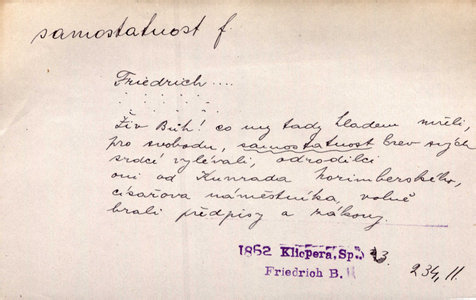 samostatnost f.
Friedrich ....
. . . . . . .
Živ Bůh! co my tady hladem mřeli,
pro svobodu, samostatnost krev svých
srdcí vylévali, odrodilci
oni od Kunrada Norimberského,
císařova náměstníka, volně
brali předpisy a zákony.
1862 Klicpera, Sp. 3.
Friedrich B.
234, 11.